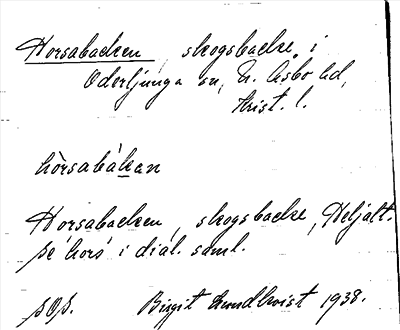 Horsabacken, skogsbacke i
Oderljunga sn, N. Åsbo hd,
Krist. l.
hòrsabákan
Horsabacken, skogsbacke, Heljalt.
se hors i dial. saml.
Birgit Lundkvist 1938.